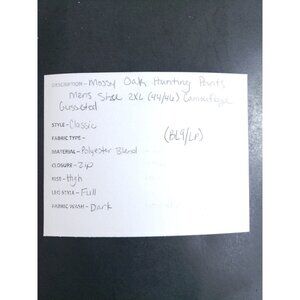 DESCRIPTION - Mossy Oak Hunting Pants
Mens Size 2XL (44/46) Camouflage
Gusseted
STYLE - Classic
FABRIC TYPE -
(BL9/LP)
MATERIAL - Polyester Blend
CLOSURE - Zip
RISE - High
LEG STYLE - Full
FABRIC WASH - Dark